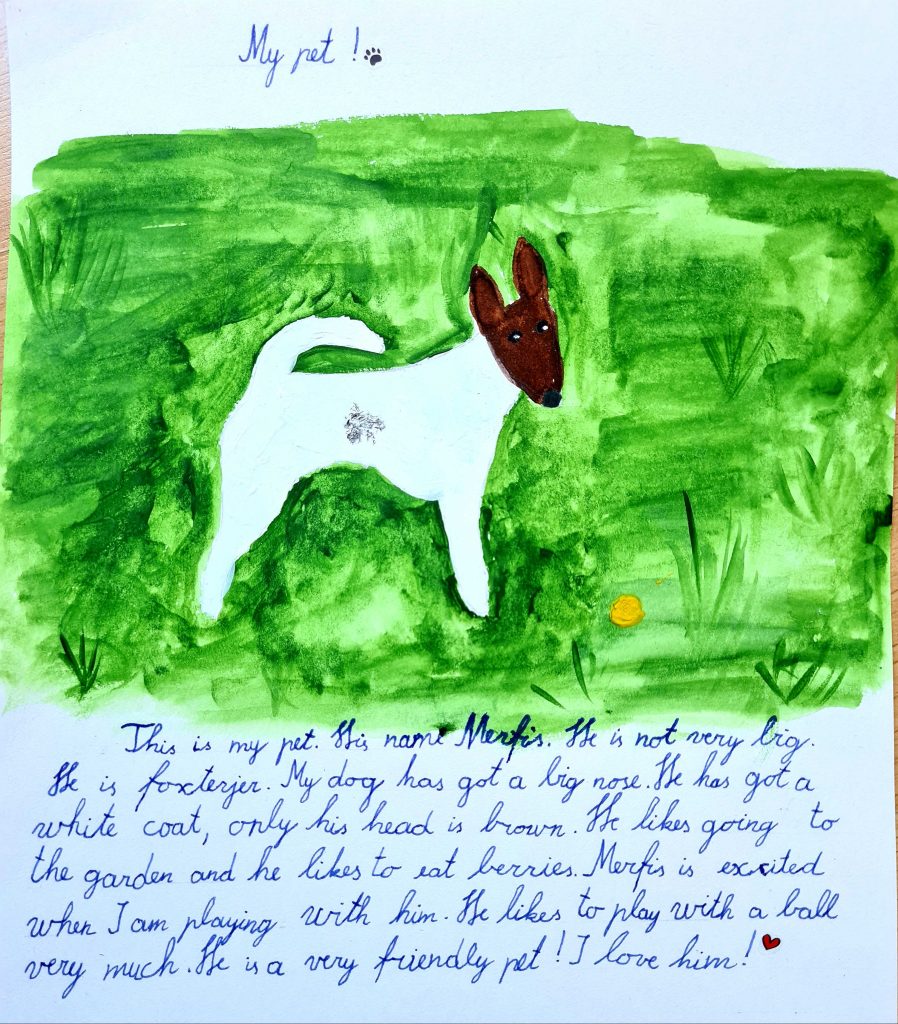 My pet !
This is my pet. His name Merfis. He is not very big.
He is foxterjer. My dog has got a big nose. He has got a
white coat, only his head is brown. He likes going to
the garden and he likes to eat berries. Merfis is excited
when I am playing with him. He likes to play with a ball
very much. He is a very friendly pet! I love him!